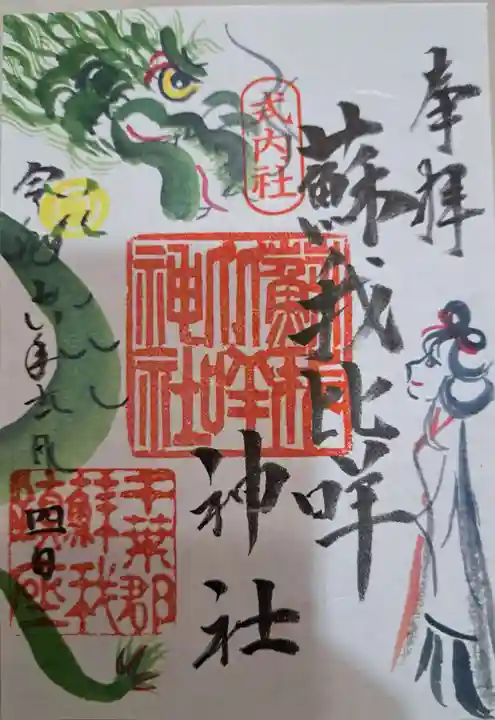 奉拝
蘇我比咩
神社
式内社
蘇我比咩神社
千葉郡
蘇我
鎮座
四日